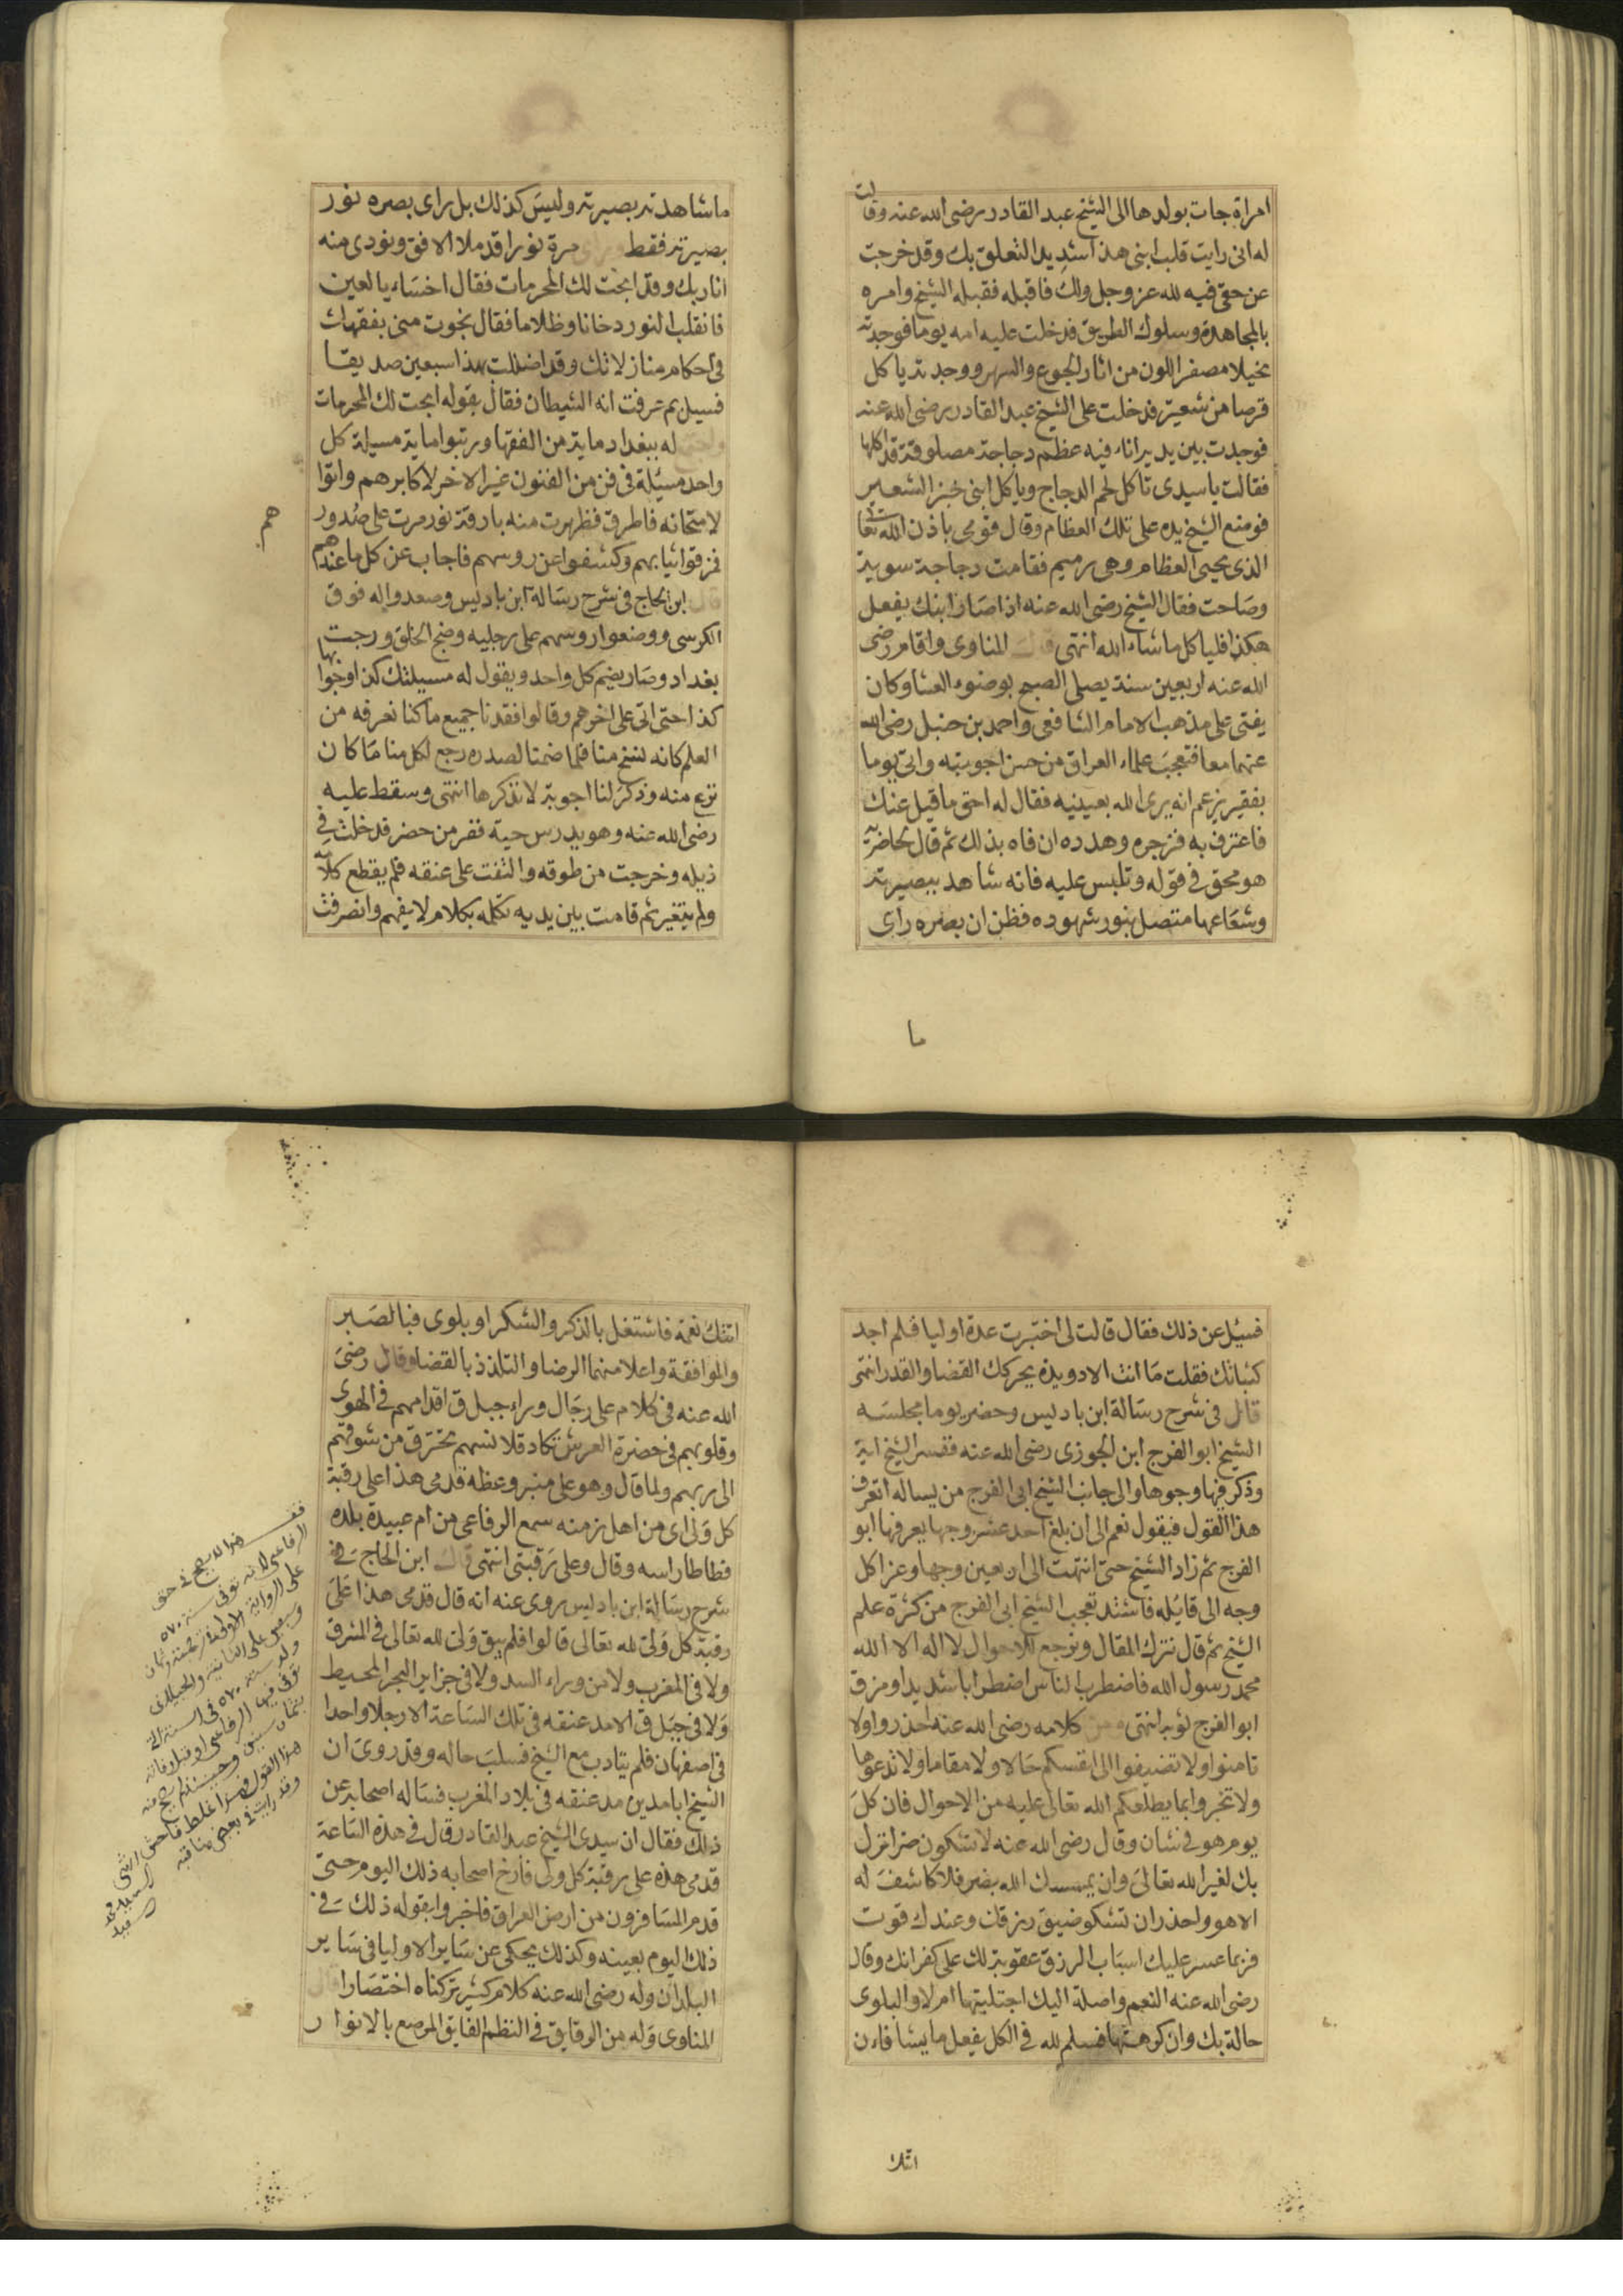 امراة جات بولدها الى الشيخ عبد القادر رضى الله عنه وقالت
له انى رايت قلب ابنى هذا شديد التعلق بك وقد خرجت
عن حقى فيه لله عز وجل ولك فاقبله فقبله الشيخ وامره
بالمجاهدة وسلوك الطريق فدخلت عليه امه يوما فوجدته
نحيلا مصفر اللون من اثار الجوع والسهر ووجدته ياكل
قرصا من شعير فدخلت على الشيخ عبد القادر رضى الله عنه
فوجدت بين يديه اناء فيه عظم دجاجة مصلوقة قد اكلها
فقالت ياسيدى تاكل لحم الدجاج وياكل ابنى خبز الشعير
فوضع الشيخ يده على تلك العظام وقال قومى باذن الله تعالى
الذى يحيى العظام وهى رميم فقامت دجاجة سوية
وصاحت فقال الشيخ رضى الله عنه اذا صار ابنك يفعل
هكذا فلياكل ما شاء الله انتهى قال المناوى واقام رضى
الله عنه اربعين سنة يصلى الصبح بوضوء العشا وكان
يفتى على مذهب الامام الشافعى واحمد بن حنبل رضى الله
عنهما معا فتعجب علماء العراق من حسن اجوبته واتى يوما
بفقير يزعم انه يرى الله بعينيه فقال له احق ما قيل عنك
فاعترف به فزجره وهدده ان فاه بذلك ثم قال لحاضريه
هو محق فى قوله وتلبس عليه فانه شاهد ببصيرته
وشعاعها متصل بنور شهوده فظن ان بصره راى
ما
ما شاهدته بصيرته وليس كذلك بل راى بصره نور
بصيرته فقط وراى مرة نورا قد ملا الافق ونودى منه
انا ربك وقد ابحت لك المحرمات فقال اخساء يا لعين
فانقلب النور دخانا وظلاما فقال نجوت منى بفقهك
فى احكام منازلاتك وقد اضللت بهذا سبعين صديقا
فسيل بم عرفت انه الشيطان فقال بقوله ابحت لك المحرمات
واجتمع له ببغداد ماية من الفقها ورتبوا ماية مسيلة كل
واحد مسئلة فى فن من الفنون غير الاخر لاكابرهم واتوا
لامتحانه فاطرق فظهرت منه بارقة نور مرت على صدور
هم
فمزقوا ثيابهم وكشفوا عن روسهم فاجاب عن كل ما عندهم
قال ابن الحاج فى شرح رسالة ابن باديس وصعدوا له فوق
الكرسى ووضعوا روسهم على رجليه وضج الخلق ورجت
بغداد وصار يضم كل واحد ويقول له مسيلتك كذا وجوابها
كذا حتى اتى على اخرهم وقالوا فقدنا جميع ما كنا نعرفه من
العلم كانه نسخ منا فلما ضمنا لصدره رجع لكل منا ما كان
نزع منه وذكر لنا اجوبة لا نذكرها انتهى وسقط عليه
رضى الله عنه وهو يدرس حية ففر من حضر فدخلت فى
ذيله وخرجت من طوقه والتفت على عنقه فلم يقطع كلامه
ولم يتغير ثم قامت بين يديه تكلمه بكلام لا يفهم وانصرفت
فسيل عن ذلك فقال قالت لى اختبرت عدة اوليا فلم اجد
كثباتك فقلت ما انت الا دويدة يحركك القضا والقدر انتهى
قال فى شرح رسالة ابن باديس وحضر يوما مجلسه
الشيخ ابو الفرج ابن الجوزى رضى الله عنه ففسر الشيخ اية
وذكر فيها وجوها والى جانب الشيخ ابى الفرج من يساله اتعرف
هذا القول فيقول نعم الى ان بلغ احد عشر وجها يعرفها ابو
الفرج ثم زاد الشيخ حتى انتهت الى اربعين وجها وعزا كل
وجه الى قايله فاشتد تعجب الشيخ ابى الفرج من كثرة علم
الشيخ ثم قال نترك المقال ونرجع للاحوال لا اله الا الله
محمد رسول الله فاضطرب الناس اضطرابا شديدا ومزق
ابو الفرج ثوبه انتهى ومن كلامه رضى الله عنه احذروا ولا
تامنوا ولا تضيفوا الى انفسكم حالا ولا مقاما ولا تدعوها
ولا تخبروا بما يطلعكم الله تعالى عليه من الاحوال فان كل
يوم هو فى شان وقال رضى الله عنه لا تشكون ضرا نزل
بك لغير الله تعالى وان يمسسك الله بضر فلا كاشف له
الا هو واحذر ان تشكو ضيق رزقك وعندك قوت
فربما عسر عليك اسباب الرزق عقوبة لك على كفرانك وقال
رضى الله عنه النعم واصلة اليك اجتلبتها ام لا والبلوى
حالة بك وان كرهتها فسلم لله فى الكل يفعل ما يشا فان
اتتك
اتتك نعمة فاشتغل بالذكر والشكر او بلوى فبالصبر
والموافقة واعلا منهما الرضا والتلذذ بالقضا وقال رضى
الله عنه فى كلام على رجال وراء جبل ق اقدامهم فى الهوى
وقلوبهم فى حضرة العرش تكاد قلانسهم تخترق من شوقهم
الى ربهم ولما قال وهو على منبر وعظه قدمى هذا على رقبة
كل ولى اى من اهل زمنه سمع الرفاعى من ام عبيدة بلده
فطاطا راسه وقال وعلى رقبتى انتهى قال ابن الحاج فى
شرح رسالة ابن باديس روى عنه انه قال قدمى هذا على
رقبة كل ولى لله تعالى قالوا فلم يبق ولى لله تعالى فى المشرق
ولا فى المغرب ولا من وراء السد ولا فى جزاير البحر المحيط
ولا فى جبل ق الا مد عنقه فى تلك الساعة الا رجلا واحدا
فى اصفهان فلم يتادب مع الشيخ فسلب حاله وقد روى ان
الشيخ ابا مدين مد عنقه فى بلاد المغرب فساله اصحابه عن
ذلك فقال ان سيدى الشيخ عبد القادر قال فى هذه الساعة
قدمى هذه على رقبة كل ولى فارخ اصحابه ذلك اليوم حتى
قدم المسافرون من ارض العراق فاخبروا بقوله ذلك فى
ذلك اليوم بعينه وكذلك يحكى عن ساير الاوليا فى ساير
البلدان وله رضى الله عنه كلام كثير تركناه اختصارا قال
المناوى وله من الرقايق فى النظم الفايق المرصع بالانوار
هذا لا يصح فى حق
الرفاعى لانه توفى سنة ٥٧٠
على الرواية الاولى
توفى فيها الرفاعى او قبل وفاته
بثمان سنين وحينئذ لم يصح منه
هذا القول فهذا غلط فاحش
وقد رايت فى بعض مناقبه